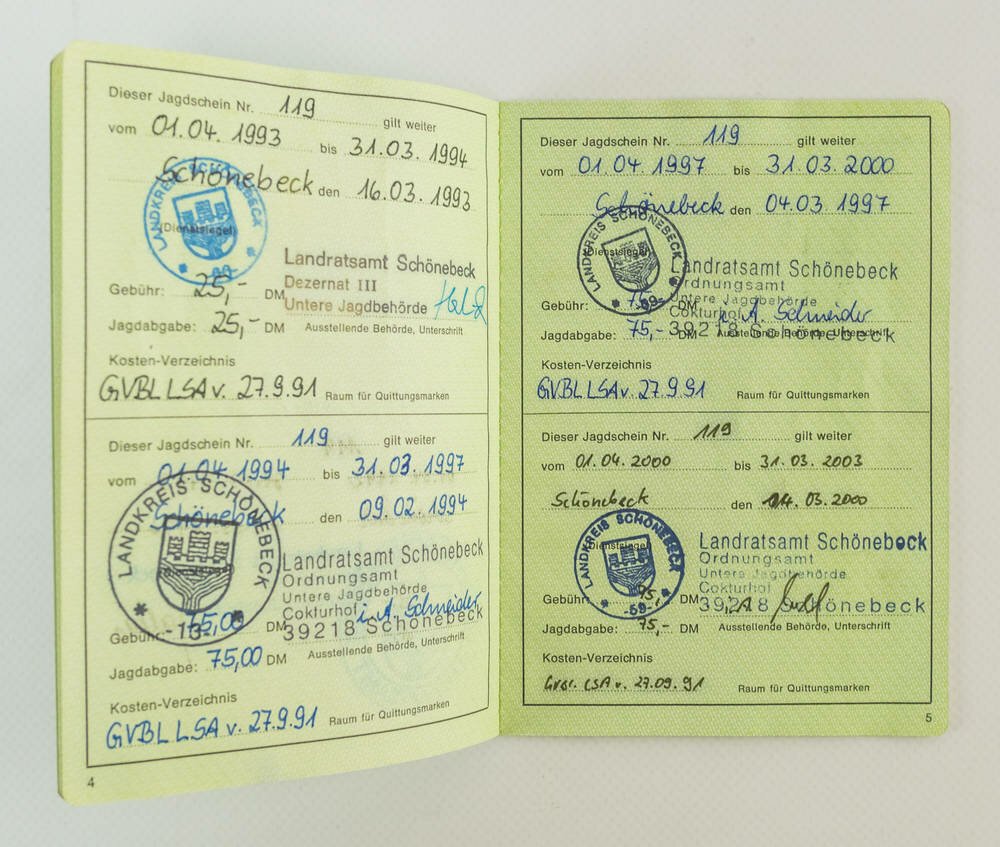 Dieser Jagdschein Nr. 119 gilt weiter
vom 01.04.1993 bis 31.03.1994
Schönebeck den 16.03.1993
LANDKREIS SCHÖNEBECK
(Dienstsiegel)
Landratsamt Schönebeck
Dezernat III
Untere Jagdbehörde
Gebühr: 25,- DM
Jagdabgabe: 25,- DM Ausstellende Behörde, Unterschrift
Kosten-Verzeichnis
GVBL LSA v. 27.9.91 Raum für Quittungsmarken
Dieser Jagdschein Nr. 119 gilt weiter
vom 01.04.1994 bis 31.03.1997
Schönebeck den 09.02.1994
LANDKREIS SCHÖNEBECK
-13-
Landratsamt Schönebeck
Ordnungsamt
Untere Jagdbehörde
Cokturhof i. A. Schneider
39218 Schönebeck
Gebühr: 75,00 DM
Jagdabgabe: 75,00 DM Ausstellende Behörde, Unterschrift
Kosten-Verzeichnis
GVBL LSA v. 27.9.91 Raum für Quittungsmarken
4
Dieser Jagdschein Nr. 119 gilt weiter
vom 01.04.1997 bis 31.03.2000
Schönebeck den 04.03.1997
LANDKREIS SCHÖNEBECK
(Dienstsiegel)
-59-
Landratsamt Schönebeck
Ordnungsamt
Untere Jagdbehörde
Cokturhof i. A. Schneider
39218 Schönebeck
Gebühr: 75,- DM
Jagdabgabe: 75,- DM Ausstellende Behörde, Unterschrift
Kosten-Verzeichnis
GVBL LSA v. 27.9.91 Raum für Quittungsmarken
Dieser Jagdschein Nr. 119 gilt weiter
vom 01.04.2000 bis 31.03.2003
Schönebeck den 14.03.2000
LANDKREIS SCHÖNEBECK
(Dienstsiegel)
-59-
Landratsamt Schönebeck
Ordnungsamt
Untere Jagdbehörde
Cokturhof
39218 Schönebeck
i.A.
Gebühr: 75,- DM
Jagdabgabe: 75,- DM Ausstellende Behörde, Unterschrift
Kosten-Verzeichnis
GVBl. LSA v. 27.09.91 Raum für Quittungsmarken
5